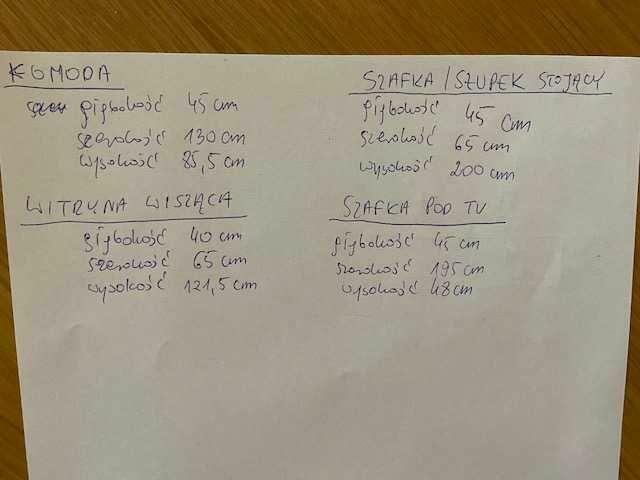 KOMODA
głębokość 45 cm
szerokość 130 cm
wysokość 85,5 cm
WITRYNA WISZĄCA
głębokość 40 cm
szerokość 65 cm
wysokość 121,5 cm
SZAFKA / SŁUPEK STOJĄCY
głębokość 45 cm
szerokość 65 cm
wysokość 200 cm
SZAFKA POD TV
głębokość 45 cm
szerokość 195 cm
wysokość 48 cm